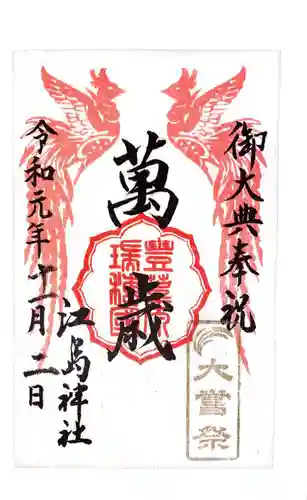 御大典奉祝
萬歳
大嘗祭
江島神社
令和元年十一月二日